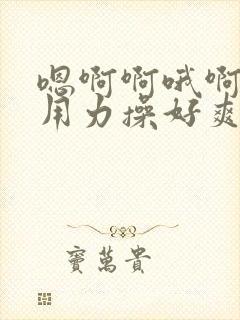 嗯啊啊哦啊
用力操好爽
窦萬貴